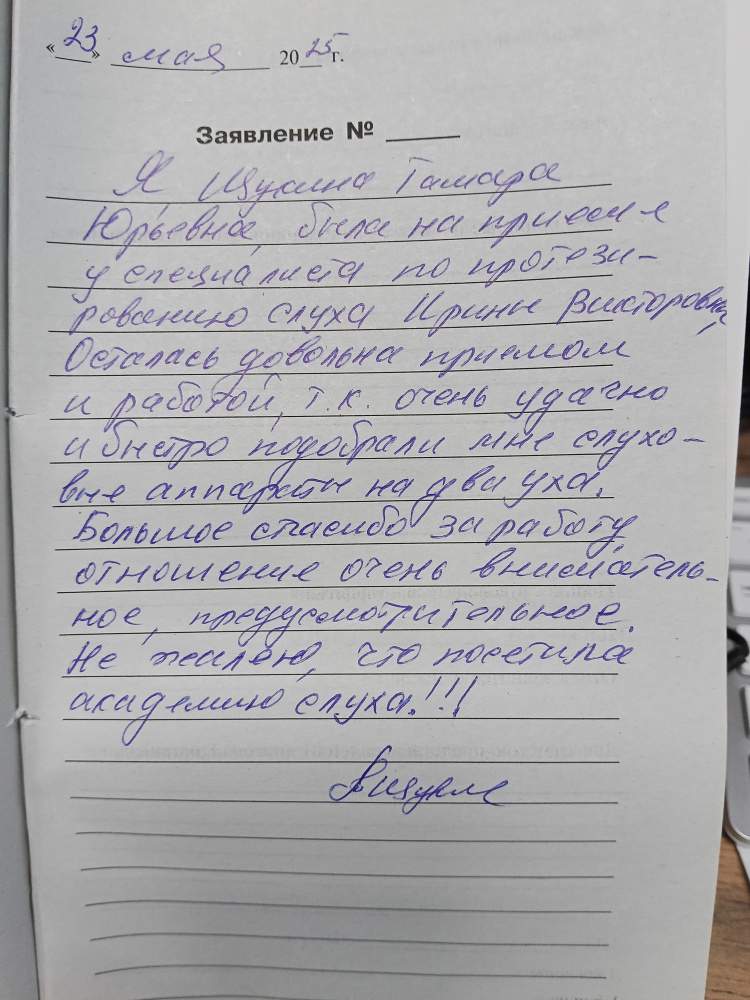 «23» мая 2025 г.
Заявление №
Я, Щукина Тамара
Юрьевна, была на приеме
у специалиста по протези-
рованию слуха Ирины Викторовны,
Осталась довольна приемом
и работой, т.к. очень удачно
и быстро подобрали мне слухо-
вые аппараты на два уха.
Большое спасибо за работу
отношение очень вниматель-
ное, предусмотрительное.
Не жалею, что посетила
академию слуха.!!!